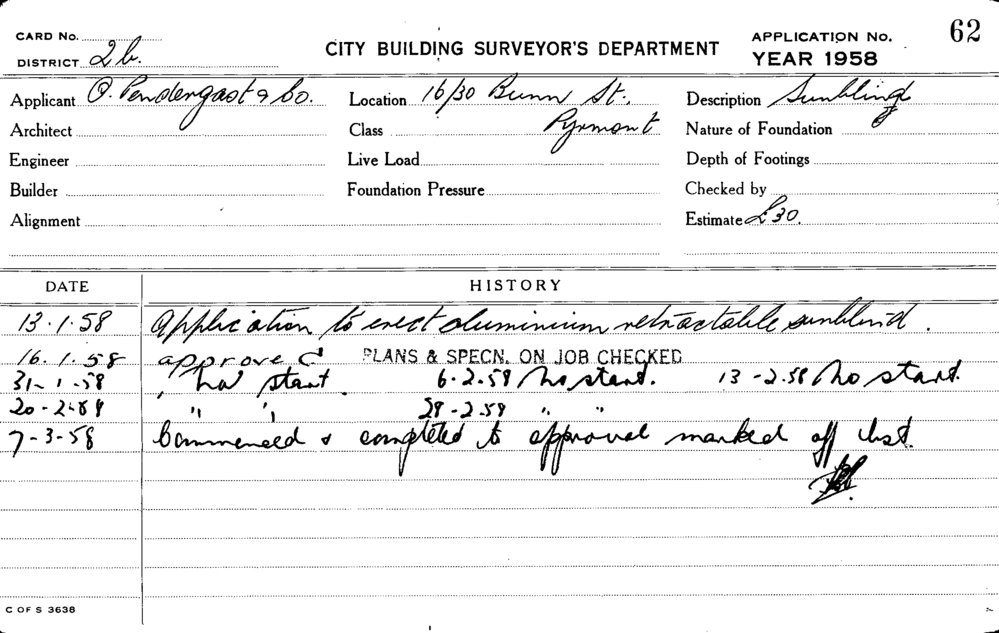 CARD No. CITY BUILDING SURVEYOR'S DEPARTMENT APPLICATION No. 62
DISTRICT 2b. YEAR 1958
Applicant O. Pendergast & Co. Location 16/30 Bunn St. Description Sunblind
Architect Class Pyrmont Nature of Foundation
Engineer Live Load Depth of Footings
Builder Foundation Pressure Checked by
Alignment Estimate £30.
DATE HISTORY
13.1.58 Application to erect aluminium retractable sunblind.
16.1.58 approved PLANS & SPECN. ON JOB CHECKED
31-1-58 No start 6.2.58 No start. 13-2.58 No start.
20-2-58 " " 28-2.58 " "
7-3-58 Commenced & completed to approval marked off list.
C OF S 3638